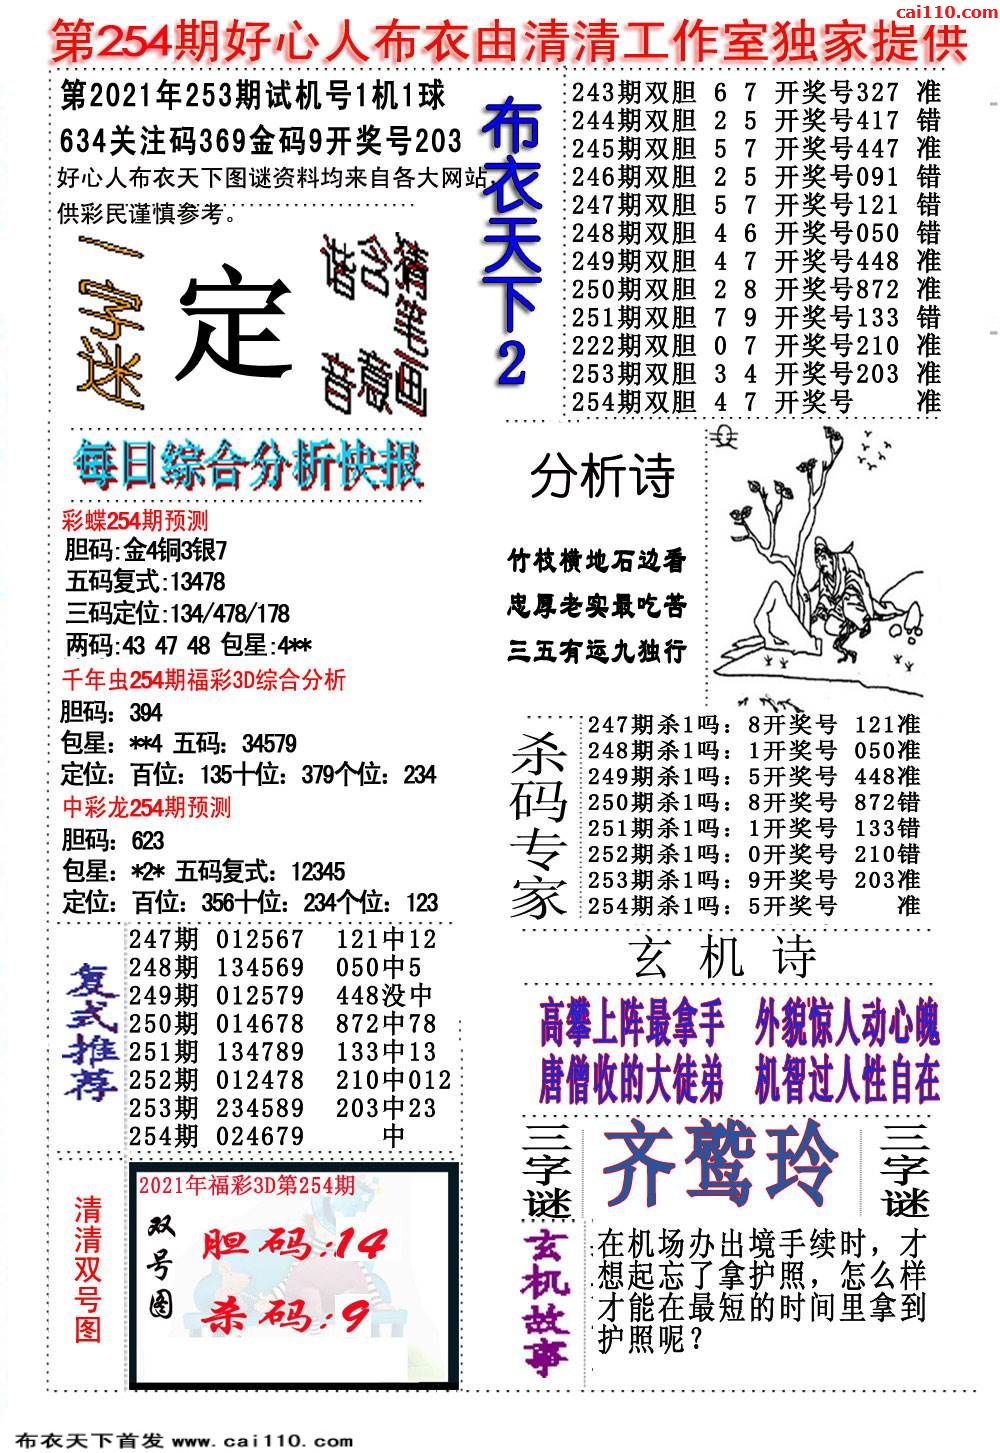 cai110.com
第254期好心人布衣由清清工作室独家提供
第2021年253期试机号1机1球
634关注码369金码9开奖号203
好心人布衣天下图谜资料均来自各大网站，
供彩民谨慎参考。
一字迷
定
猜笔画
含意
谐音
布衣天下2
243期双胆 6 7 开奖号327 准
244期双胆 2 5 开奖号417 错
245期双胆 5 7 开奖号447 准
246期双胆 2 5 开奖号091 错
247期双胆 5 7 开奖号121 错
248期双胆 4 6 开奖号050 错
249期双胆 4 7 开奖号448 准
250期双胆 2 8 开奖号872 准
251期双胆 7 9 开奖号133 错
222期双胆 0 7 开奖号210 准
253期双胆 3 4 开奖号203 准
254期双胆 4 7 开奖号 准
每日综合分析快报
彩蝶254期预测
胆码:金4铜3银7
五码复式:13478
三码定位:134/478/178
两码:43 47 48 包星:4**
千年虫254期福彩3D综合分析
胆码：394
包星：**4 五码：34579
定位：百位：135十位：379个位：234
中彩龙254期预测
胆码：623
包星：*2* 五码复式：12345
定位：百位：356十位：234个位：123
分析诗
竹枝横地石边看
忠厚老实最吃苦
三五有运九独行
杀码专家
247期杀1吗：8开奖号 121准
248期杀1吗：1开奖号 050准
249期杀1吗：5开奖号 448准
250期杀1吗：8开奖号 872错
251期杀1吗：1开奖号 133错
252期杀1吗：0开奖号 210错
253期杀1吗：9开奖号 203准
254期杀1吗：5开奖号 准
复式推荐
247期 012567 121中12
248期 134569 050中5
249期 012579 448没中
250期 014678 872中78
251期 134789 133中13
252期 012478 210中012
253期 234589 203中23
254期 024679 中
玄机诗
高攀上阵最拿手 外貌惊人动心魄
唐僧收的大徒弟 机智过人性自在
三字谜
齐鹫玲
三字谜
清清双号图
2021年福彩3D第254期
双号图
胆码:14
杀码:9
玄机故事
在机场办出境手续时，才
想起忘了拿护照，怎么样
才能在最短的时间里拿到
护照呢？
布衣天下首发 www.cai110.com